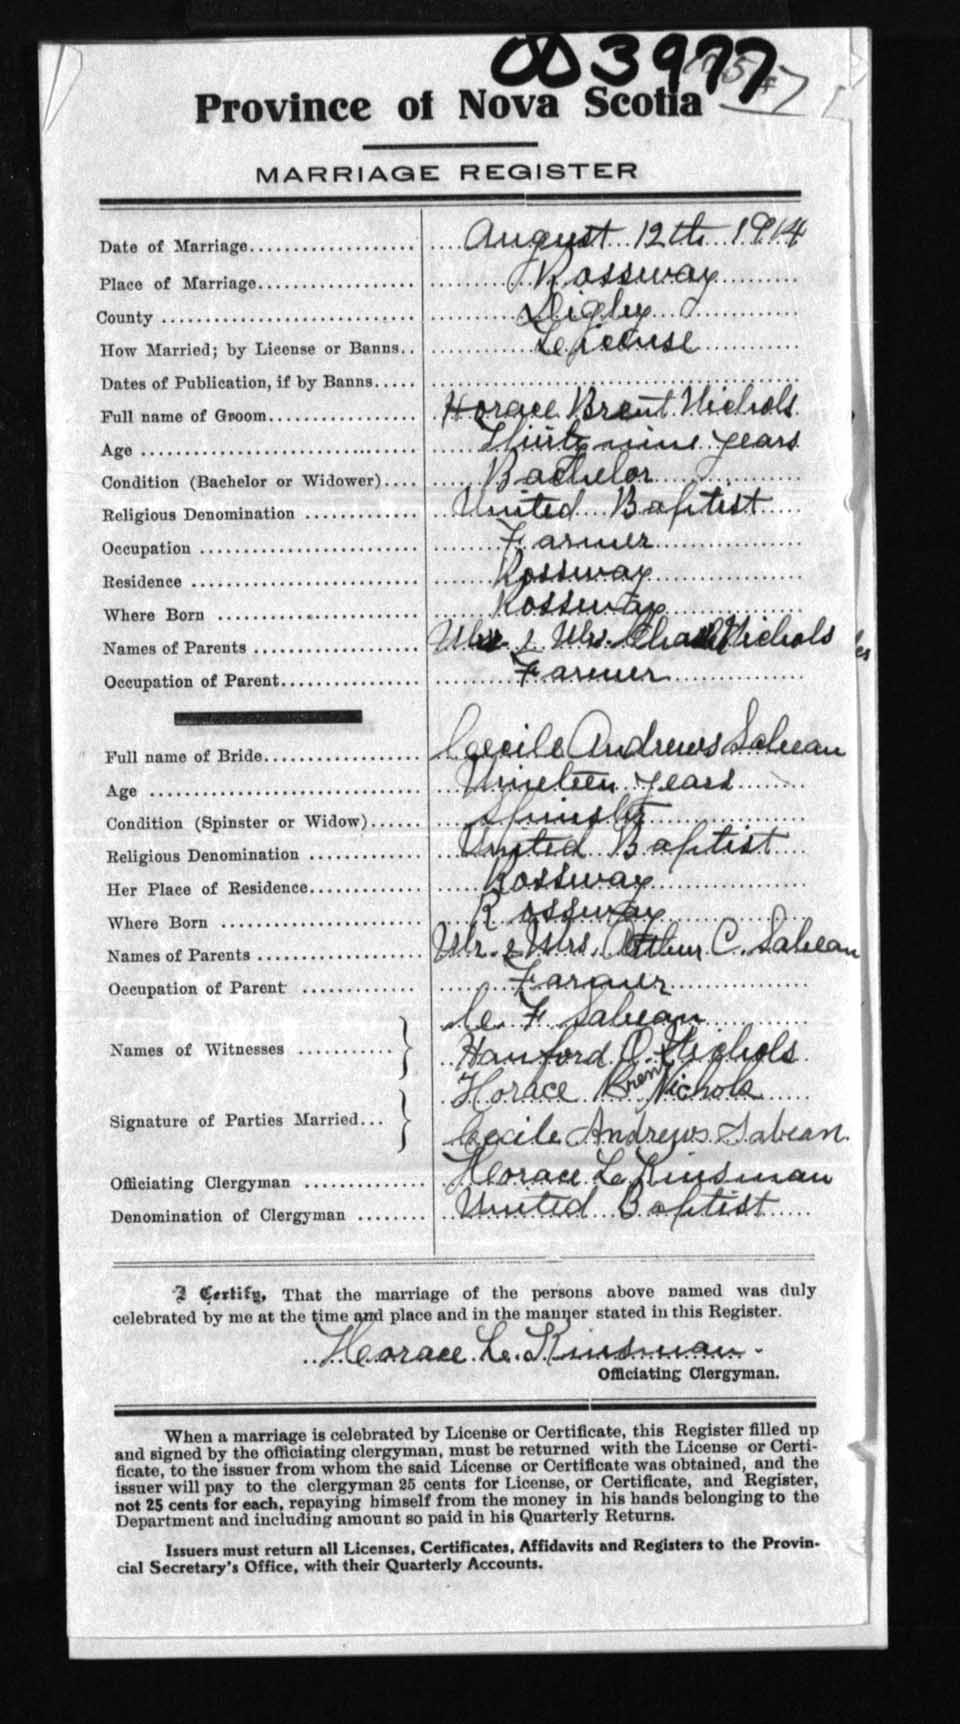 003977
Province of Nova Scotia
MARRIAGE REGISTER
Date of Marriage.................... August 12th 1914
Place of Marriage.................. Rossway
County .............................. Digby
How Married; by License or Banns.. License
Dates of Publication, if by Banns.....
Full name of Groom.................. Horace Brent Nichols
Age .................................. Thirty nine years
Condition (Bachelor or Widower).... Bachelor
Religious Denomination .............. United Baptist
Occupation ........................... Farmer
Residence ............................ Rossway
Where Born ......................... Rossway
Names of Parents .................... Mr & Mrs. Chas Nichols
Occupation of Parent................. Farmer
Full name of Bride................... Cecile Andrews Sabean
Age .................................. Nineteen years
Condition (Spinster or Widow)...... Spinster
Religious Denomination .............. United Baptist
Her Place of Residence.............. Rossway
Where Born ......................... Rossway
Names of Parents .................... Mr. & Mrs. Arthur C. Sabean
Occupation of Parent .............. Farmer
C. F. Sabean
Names of Witnesses ............
Hanford O. Nichols
Horace Brent Nichols
Signature of Parties Married...
Cecile Andrews Sabean
Officiating Clergyman .............. Horace L. Kinsman
Denomination of Clergyman ........ United Baptist
I Certify, That the marriage of the persons above named was duly
celebrated by me at the time and place and in the manner stated in this Register.
Horace L. Kinsman
Officiating Clergyman.
When a marriage is celebrated by License or Certificate, this Register filled up
and signed by the officiating clergyman, must be returned with the License or Certi-
ficate, to the issuer from whom the said License or Certificate was obtained, and the
issuer will pay to the clergyman 25 cents for License, or Certificate, and Register,
not 25 cents for each, repaying himself from the money in his hands belonging to the
Department and including amount so paid in his Quarterly Returns.
Issuers must return all Licenses, Certificates, Affidavits and Registers to the Provin-
cial Secretary's Office, with their Quarterly Accounts.